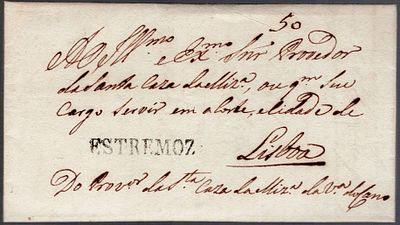 50
A O Illmo e Exmo Snr Provedor
da Santa Caza da Miza, ou qm seu
cargo servir em a Corte, e Cidade de
ESTREMOZ
Lisboa
Do Provor da Sta Caza da Miza da Va do Cano